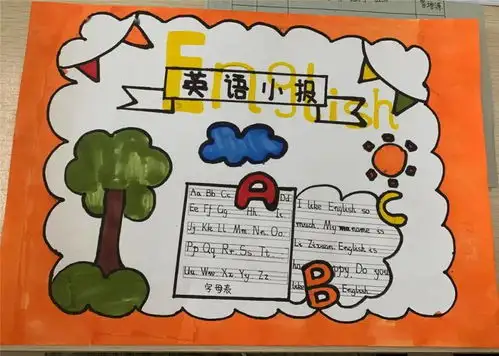 English
英语小报
A
Aa Bb Cc Dd
Ee Ff Gg Hh Ii
Jj Kk Ll Mm Nn Oo
Pp Qq Rr Ss Tt
Uu Vv Ww Xx Yy Zz
字母表
C
I like English so
much. My name is
Li Zixuan. English is
happy. Do you
like English
B